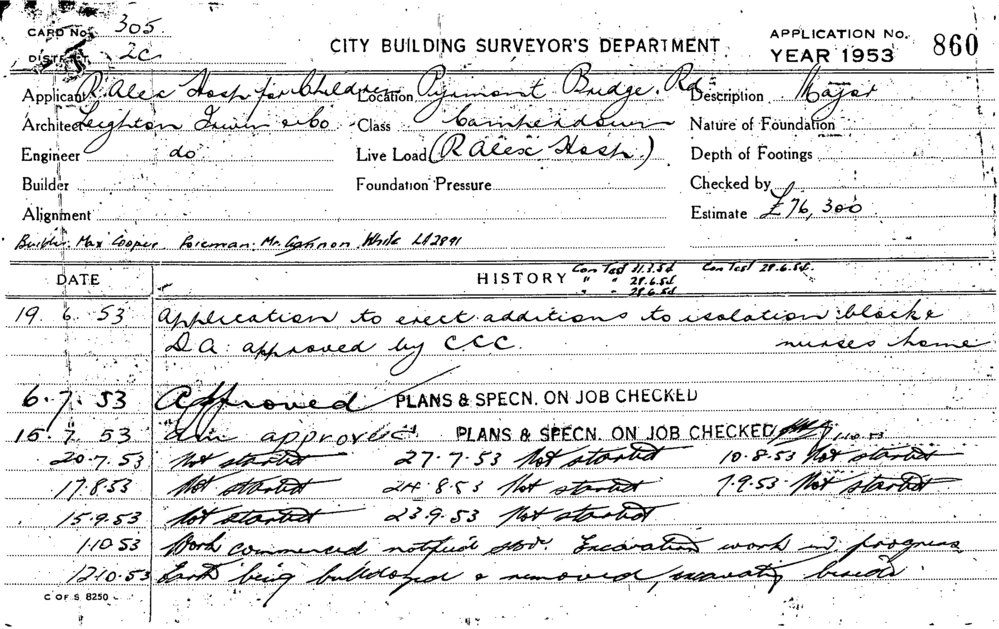 CARD No. 305.
DISTRICT 2C
CITY BUILDING SURVEYOR'S DEPARTMENT
APPLICATION No. 860
YEAR 1953
Applicant R. Alex Hosp for Children Location Pyrmont Bridge Rd Description Major
Architect Leighton Irwin & Co Class Camperdown Nature of Foundation
Engineer do Live Load (R Alex Hosp.) Depth of Footings
Builder Foundation Pressure Checked by
Alignment Estimate £76,300
Builder. Max Cooper. Foreman. Mr. White LA2891
DATE HISTORY Con Test 11.3.54 Con Test 28.6.54.
" " 28.6.54
" " 28.6.54
19 6 53 Application to erect additions to isolation block &
D A: approved by CCC. nurses home
6.7.53 Approved PLANS & SPECN. ON JOB CHECKED
15 7 53 approved PLANS & SPECN. ON JOB CHECKED 1.10.53
20.7.53 Not started 27.7.53 Not started 10.8.53 Not started
17.8.53 Not started 24.8.53 Not started 7.9.53 Not started
15.9.53 Not started 23.9.53 Not started
1.10.53 Work commenced Excavation work in progress
12.10.53 Earth being bulldozed & removed, excavating
C OF S 8250